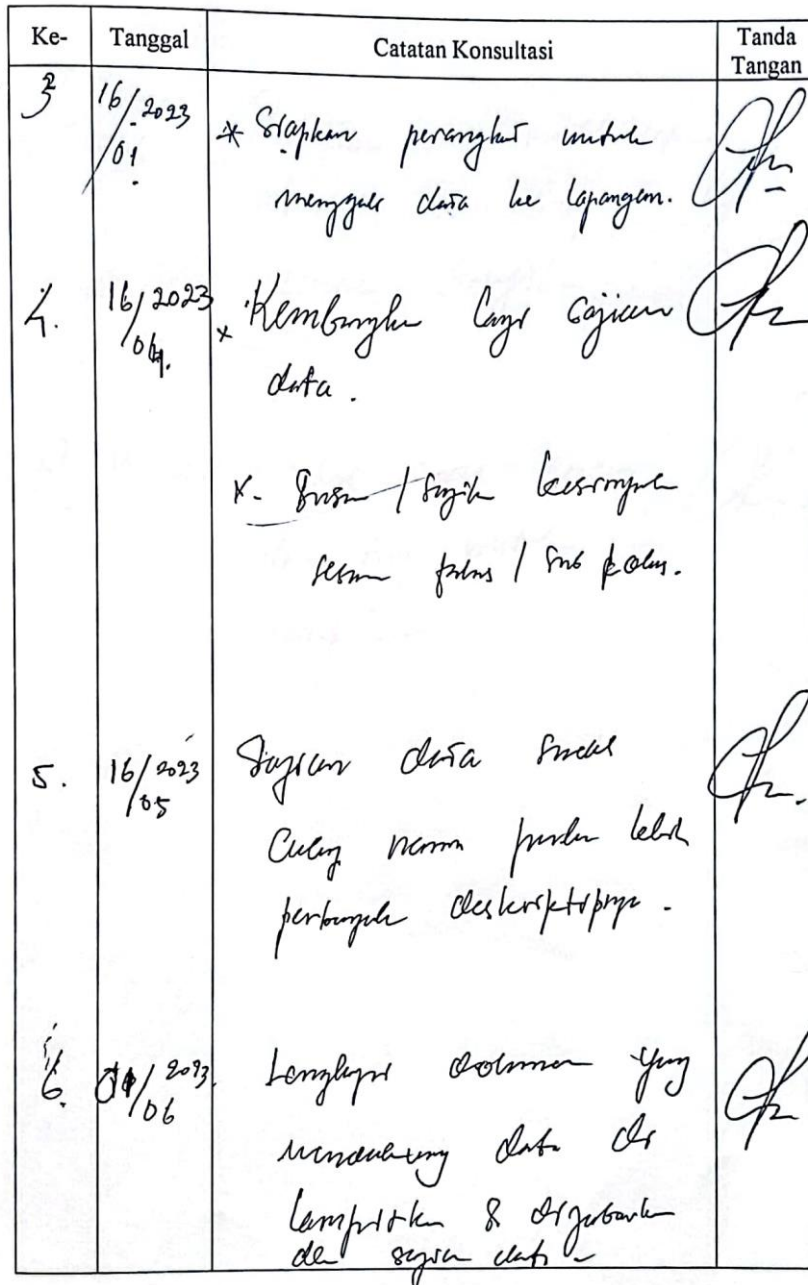 Ke- Tanggal Catatan Konsultasi Tanda Tangan
3 16/01 2023 * Siapkan perangkat untuk
menggali data ke lapangan.
4. 16/04 2023 * Kembangkan lagi sajian
data.
x- Susun / Sajikan kesimpulan
sesuai fokus / sub fokus.
5. 16/05 2023 Sajian data
perlu lebih
perbanyak deskriptipnya.
6. 2023 /06 Lengkapi dokumen yang
mendukung data di
lampirkan &
sajian data